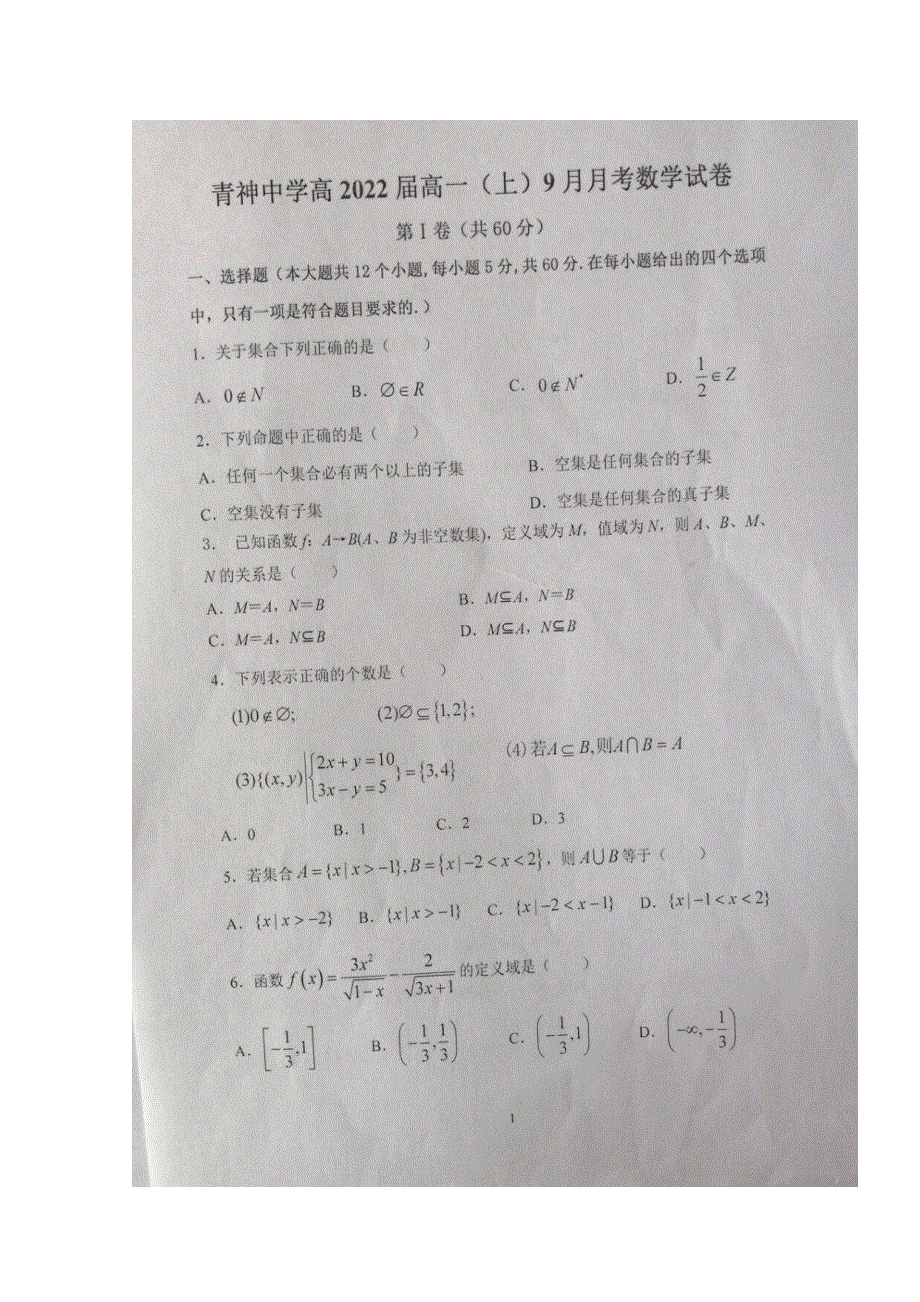 青神中学高 2022 届高一（上）9 月月考数学试卷
第 I 卷（共 60 分）
一、选择题（本大题共 12 个小题,每小题 5 分,共 60 分.在每小题给出的四个选项
中，只有一项是符合题目要求的.）
1．关于集合下列正确的是（　　）
A．0∉N　B．∅∈R　C．0∉N*　D．1/2∈Z
2．下列命题中正确的是（　　）
A．任何一个集合必有两个以上的子集　B．空集是任何集合的子集
C．空集没有子集　D．空集是任何集合的真子集
3．已知函数 f：A→B(A、B 为非空数集)，定义域为 M，值域为 N，则 A、B、M、
N 的关系是（　　）
A．M＝A，N＝B　B．M⊆A，N＝B
C．M＝A，N⊆B　D．M⊆A，N⊆B
4．下列表示正确的个数是（　　）
(1)0∉∅;　(2)∅⊆{1,2};
(3){(x,y)|{2x+y=10 3x−y=5}={3,4}　(4)若A⊆B,则A∩B=A
A．0　B．1　C．2　D．3
5．若集合 A={x|x>−1},B={x|−2<x<2}，则 A∪B 等于（　　）
A．{x|x>−2}　B．{x|x>−1}　C．{x|−2<x−1}　D．{x|−1<x<2}
6．函数 f(x)=3x²/√(1−x) − 2/√(3x+1) 的定义域是（　　）
A．[−1/3,1]　B．(−1/3,1/3)　C．(−1/3,1)　D．(−∞,−1/3)
1